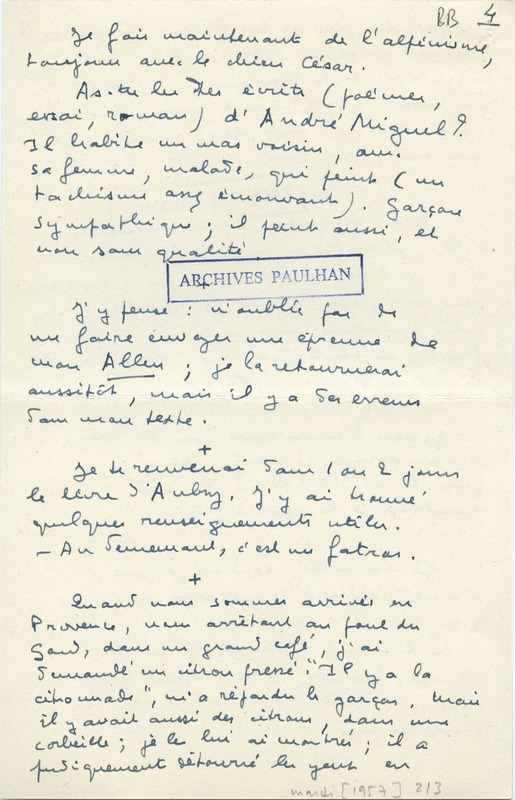 BB 4
Je fais maintenant de l'alpinisme,
toujours avec le chien César.
As-tu lu des écrits (poèmes,
essai, roman) d'André Miguel ?
Il habite un mas voisin, avec
sa femme, malade, qui peint (un
tachisme assez émouvant). Garçon
sympathique ; il peint aussi, et
non sans qualité.
ARCHIVES PAULHAN
+
J'y pense : n'oublie pas de
me faire envoyer une épreuve de
mon Allen ; je la retournerai
aussitôt, mais il y a des erreurs
dans mon texte.
+
Je te renverrai dans 1 ou 2 jours
le livre d'Aubry. J'y ai trouvé
quelques renseignements utiles.
— Au demeurant, c'est un fatras.
+
Quand nous sommes arrivés en
Provence, nous arrêtant au pont du
Gard, dans un grand café, j'ai
demandé un citron pressé : "Il y a la
citronnade", m'a répondu le garçon. Mais
il y avait aussi des citrons, dans une
corbeille ; je les lui ai montrés ; il a
pudiquement détourné les yeux en
mardi [1957] 2/3